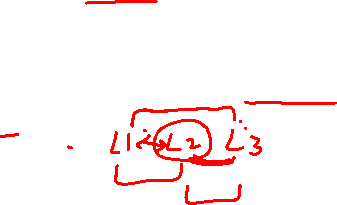 L1 ↔ L2 L3